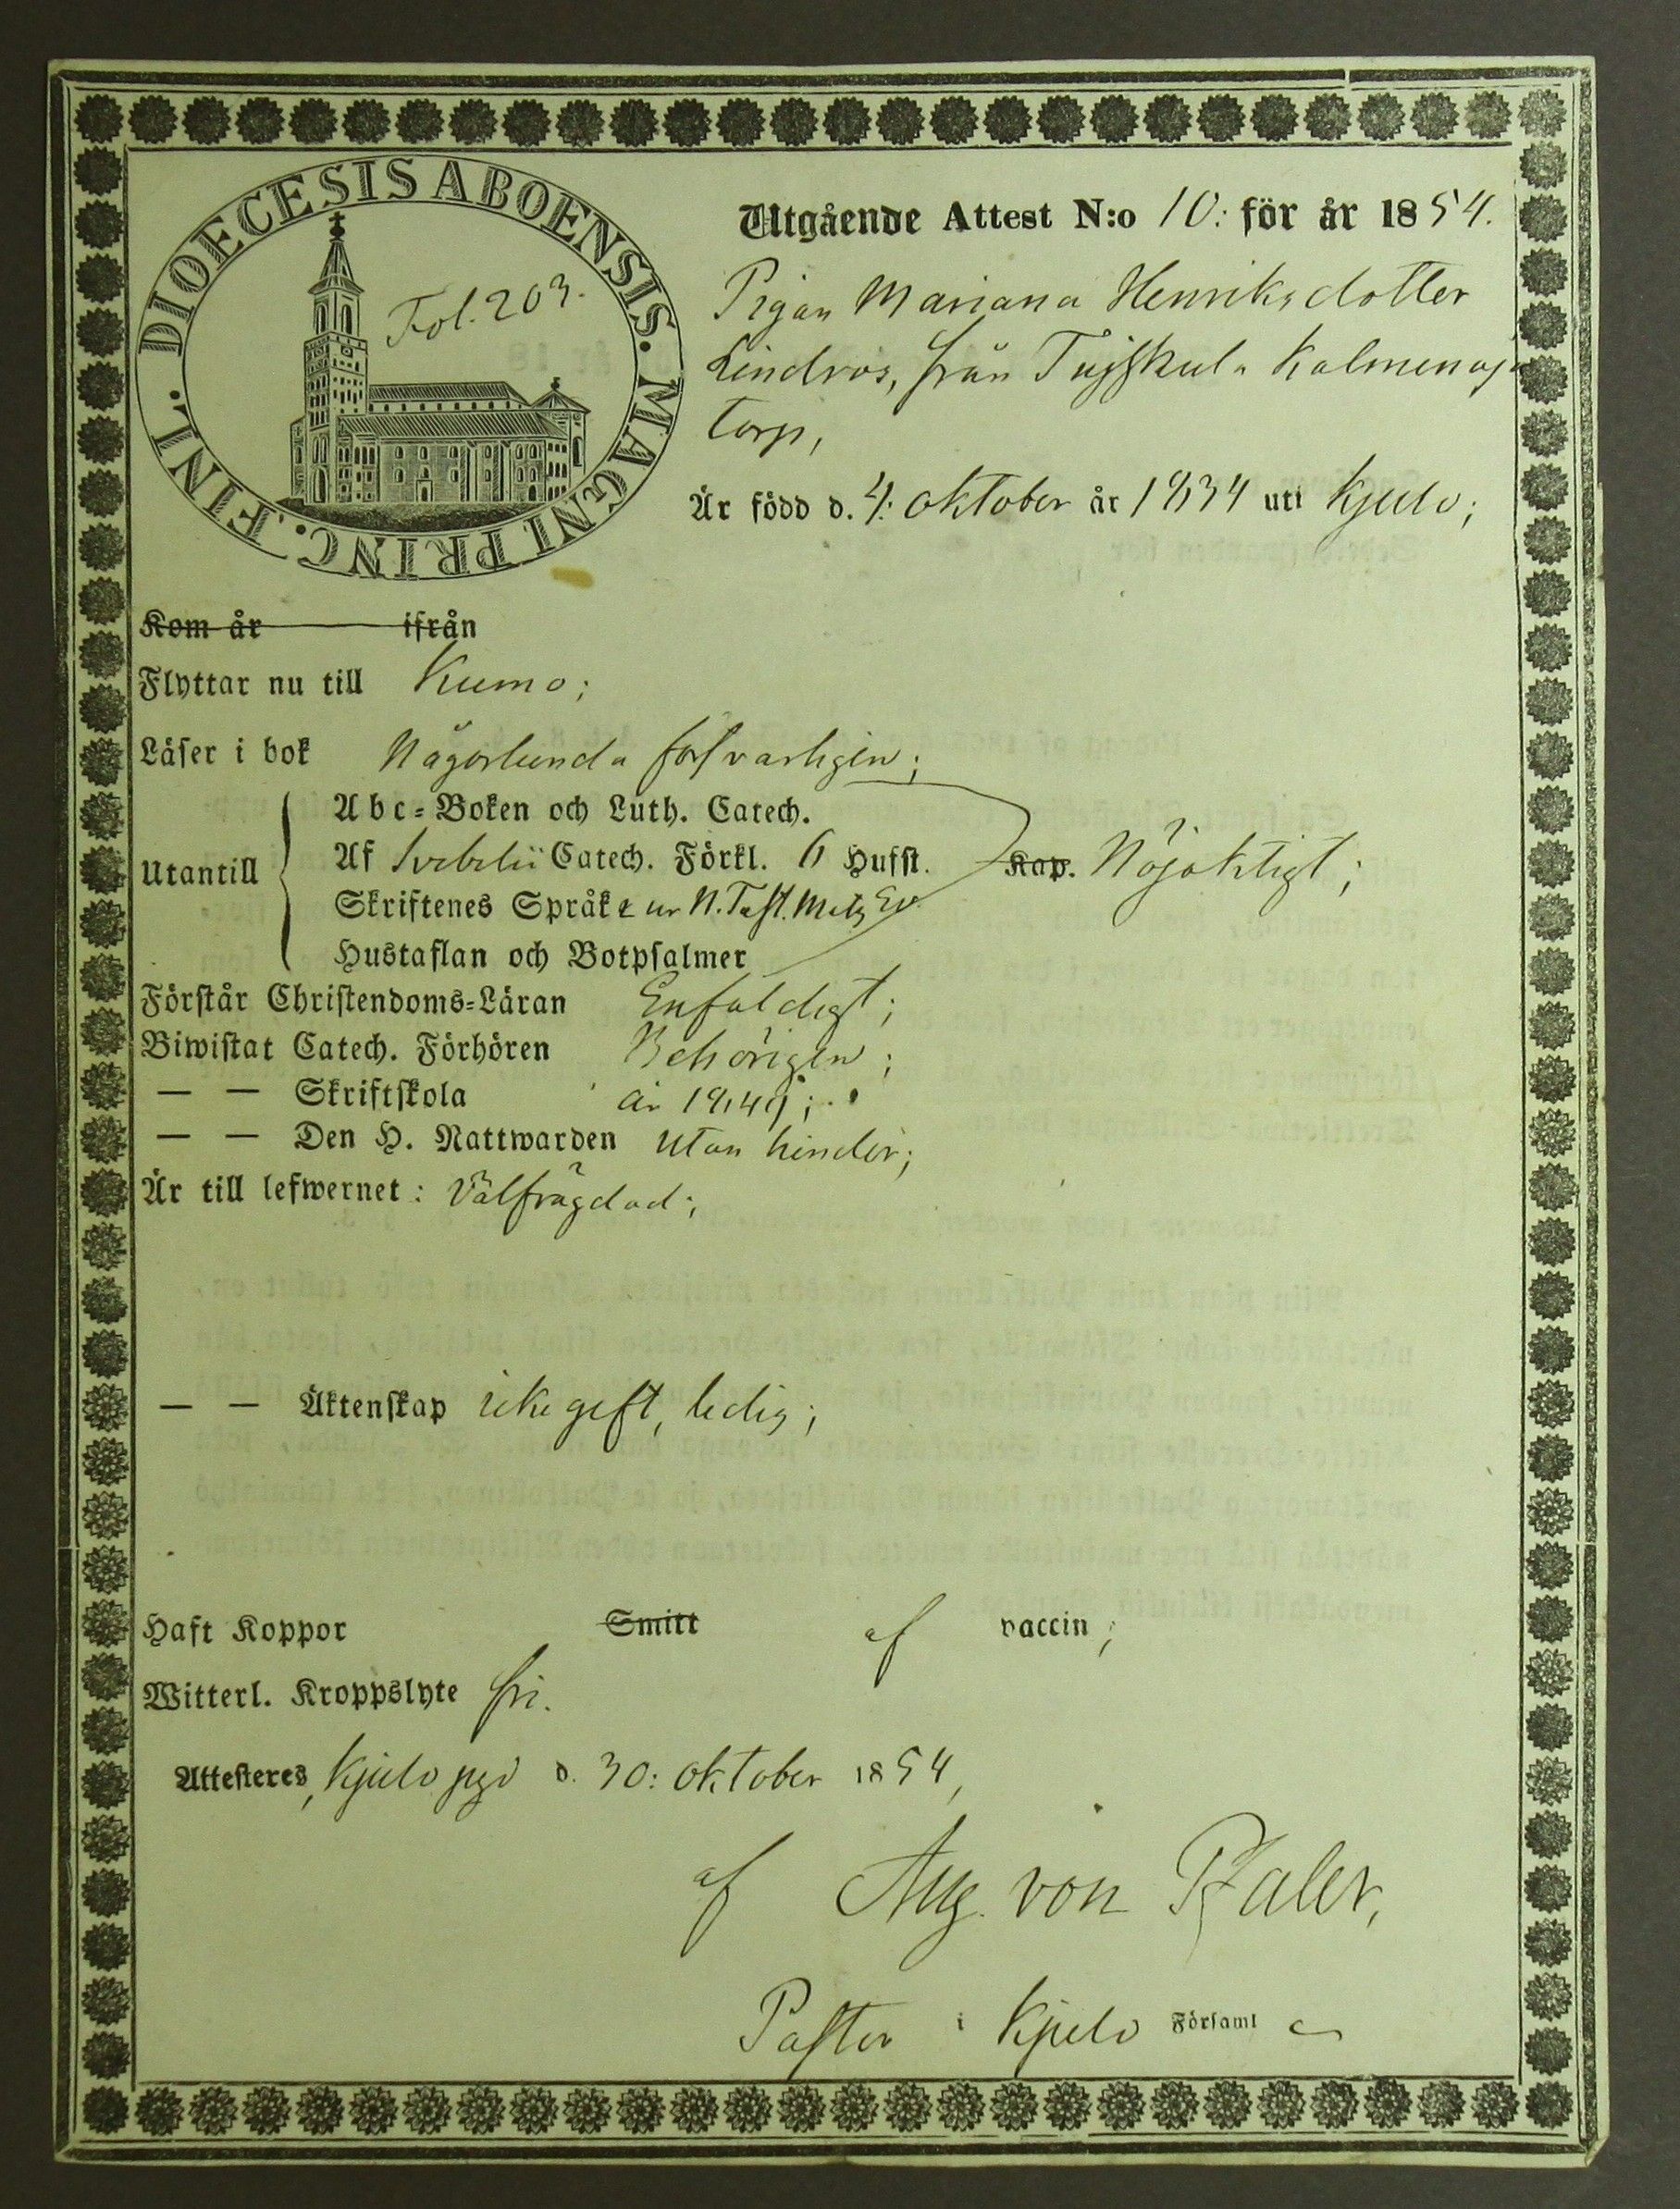 DIOECESIS ABOENSIS. MAGNI PRINC. FINL.
Fol. 203.
Utgående Attest N:o 10: för år 1854.
Pigan Mariana Henriksdotter
Lindros, från Kalmenoja
torp,
Är född d. 4: oktober år 1834 uti Kjulo;
Kom år ifrån
Flyttar nu till Kumo;
Läser i bok Någorlunda försvarligen;
Utantill
Abc-Boken och Luth. Catech.
Af Svebelii Catech. Förkl. 6 Hufst. Kap. Nöjaktigt;
Skriftenes Språk ur N. Test.
Hustaflan och Botpsalmer
Förstår Christendoms-Läran Enfaldigt;
Biwistat Catech. Förhören Behörigen;
— — Skriftskola år 1849;
— — Den H. Nattwarden utan hinder;
Är till lefwernet: Välfrägdad;
— — Äktenskap icke gift, ledig;
Haft Koppor Smitt af vaccin;
Witterl. Kroppslyte fri.
Attesteres, Kjulo pgd d. 30: oktober 1854,
af Aug. von Pfaler,
Pastor i Kjulo Församl